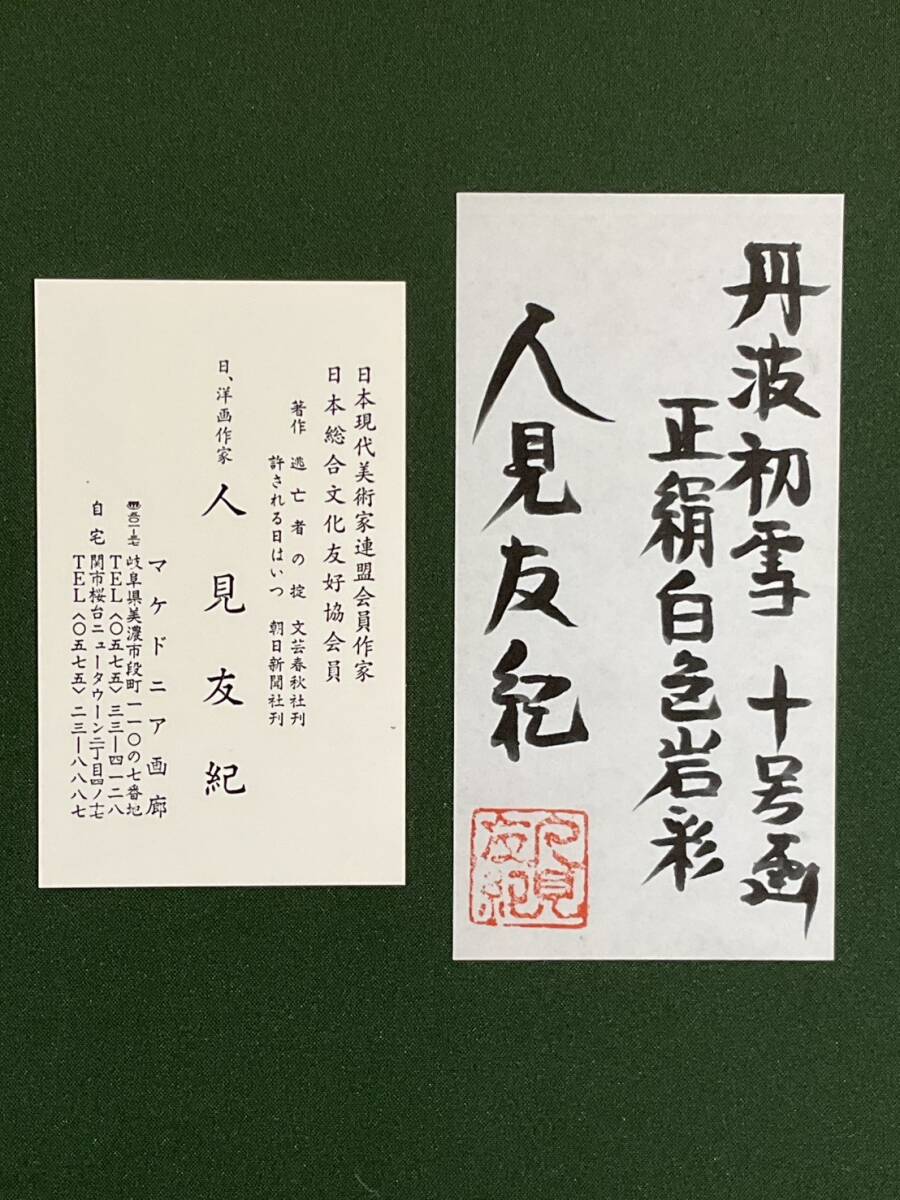 日本現代美術家連盟会員作家
日本総合文化友好協会員
著作 逃亡者の掟 文芸春秋社刊
許される日はいつ 朝日新聞社刊
日、洋画作家 人見友紀
マケドニア画廊
岐阜県美濃市段町一一〇の七番地
TEL〈〇五七五〉三三ー四一二八
自宅 関市桜台ニュータウーン二丁目四ノ十七
TEL〈〇五七五〉二三ー八八八七
丹波初雪 十号画
正絹白色岩彩
人見友紀
人見
友紀